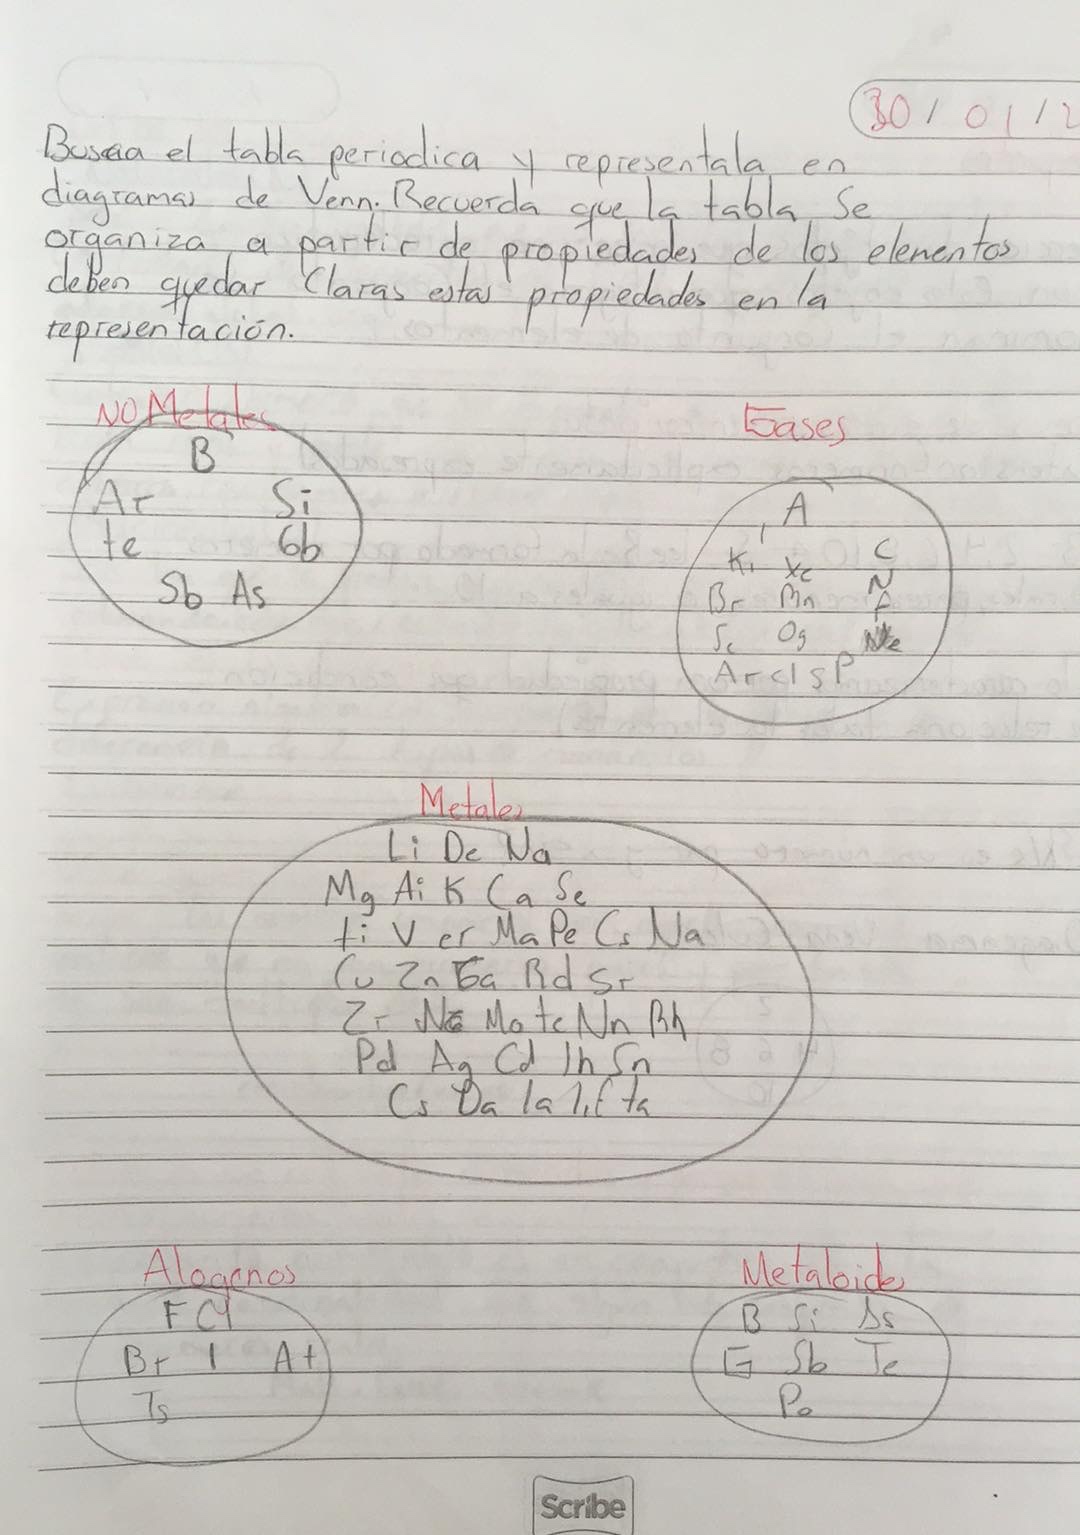 30/01/2
Buscaa el tabla periodica y representala en
diagramas de Venn. Recuerda que la tabla Se
organiza a partir de propiedades de los elementos
deben quedar Claras estas propiedades en la
representación.
NO Metales
B
Ar Si
te Gb
Sb As
Gases
A
Kr Xe C
N
Br Rn F
Se Og
Ar cl s P
Metales
Li De Na
Mg Ai K Ca Se
ti V er Ma Pe Cs Na
Cu Zn Ga Rd Sr
Zr Mo tc Nn Rh
Pd Ag Cd Ih Sn
Cs Da la ta
Alogenos
F Cl
Br I At
Ts
Metaloides
B Si As
G Sb Te
Po
Scribe